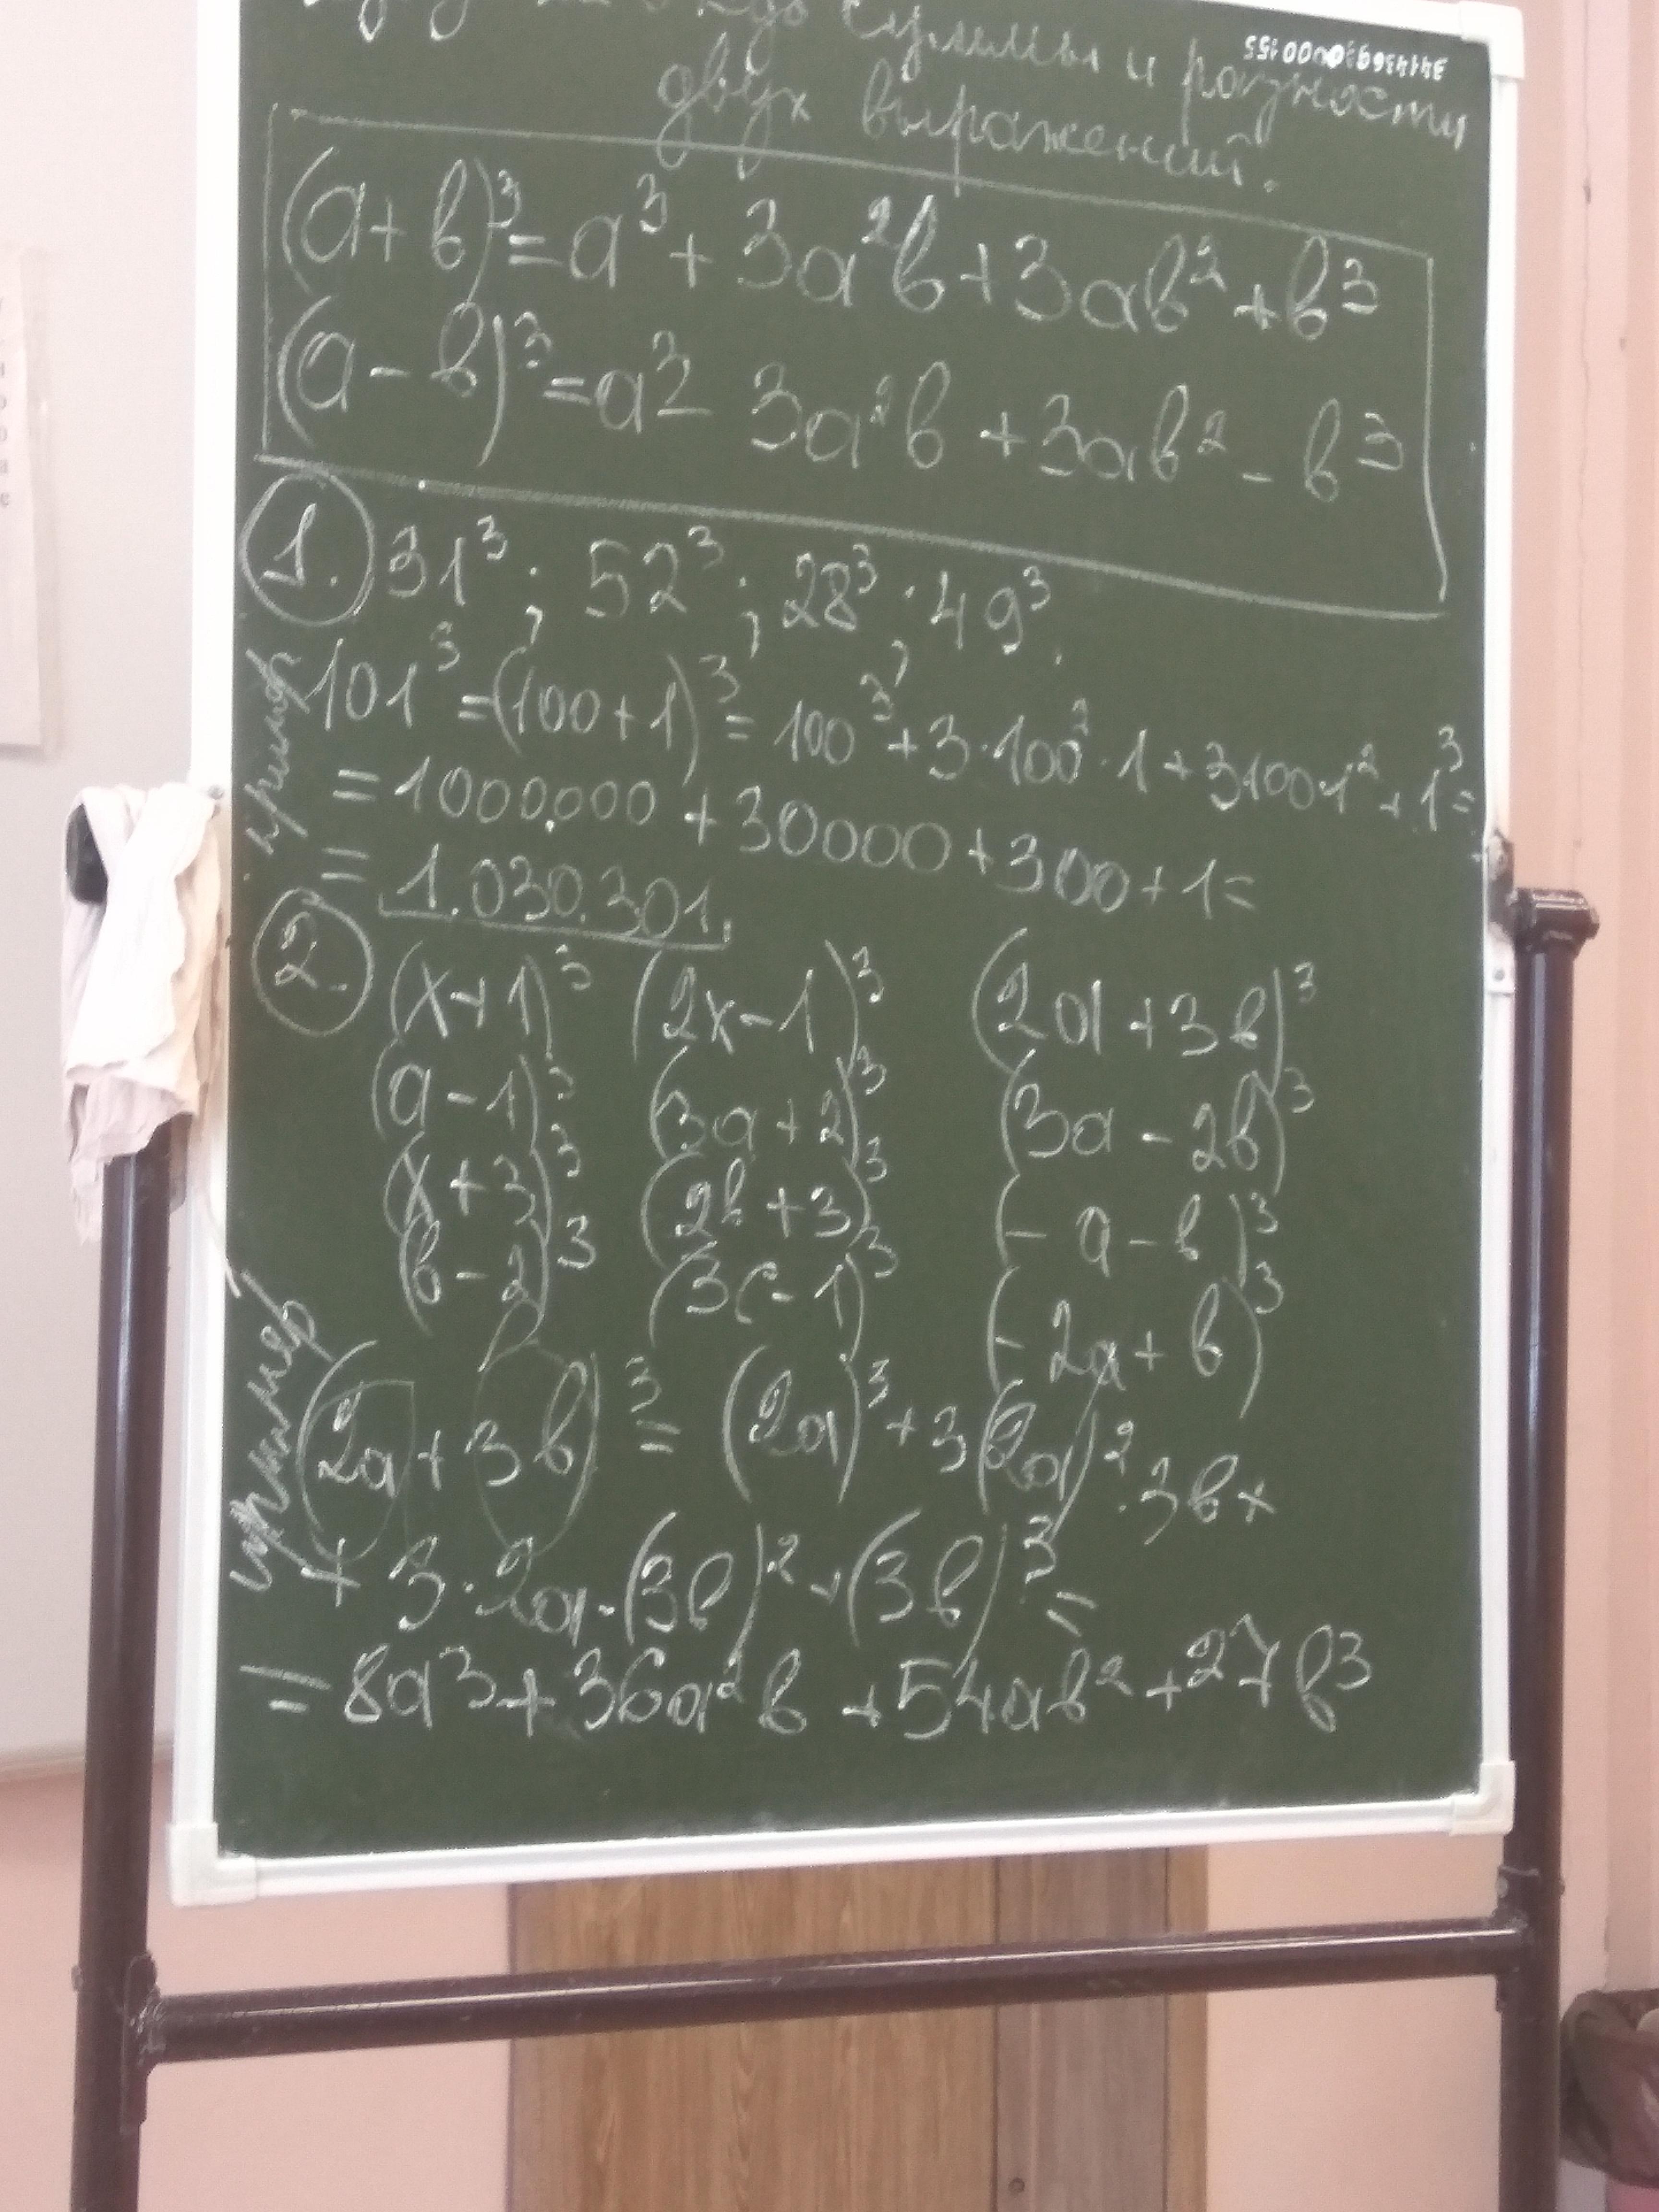 суммы и разности
двух выражений.
(a+b)³=a³+3a²b+3ab²+b³
(a-b)³=a³-3a²b+3ab²-b³
1. 31³; 52³; 28³; 49³.
пример
101³=(100+1)³=100³+3·100²·1+3100·1²+1³=
=1000.000+30000+300+1=
=1.030.301.
2. (x+1)³ (2x-1)³ (2a+3b)³
(a-1)³ (3a+2)³ (3a-2b)³
(x+3)³ (2b+3)³ (-a-b)³
(b-2)³ (3c-1)³ (-2a+b)³
пример
(2a+3b)³=(2a)³+3(2a)²·3b+
+3·2a·(3b)²+(3b)³=
=8a³+36a²b+54ab²+27b³